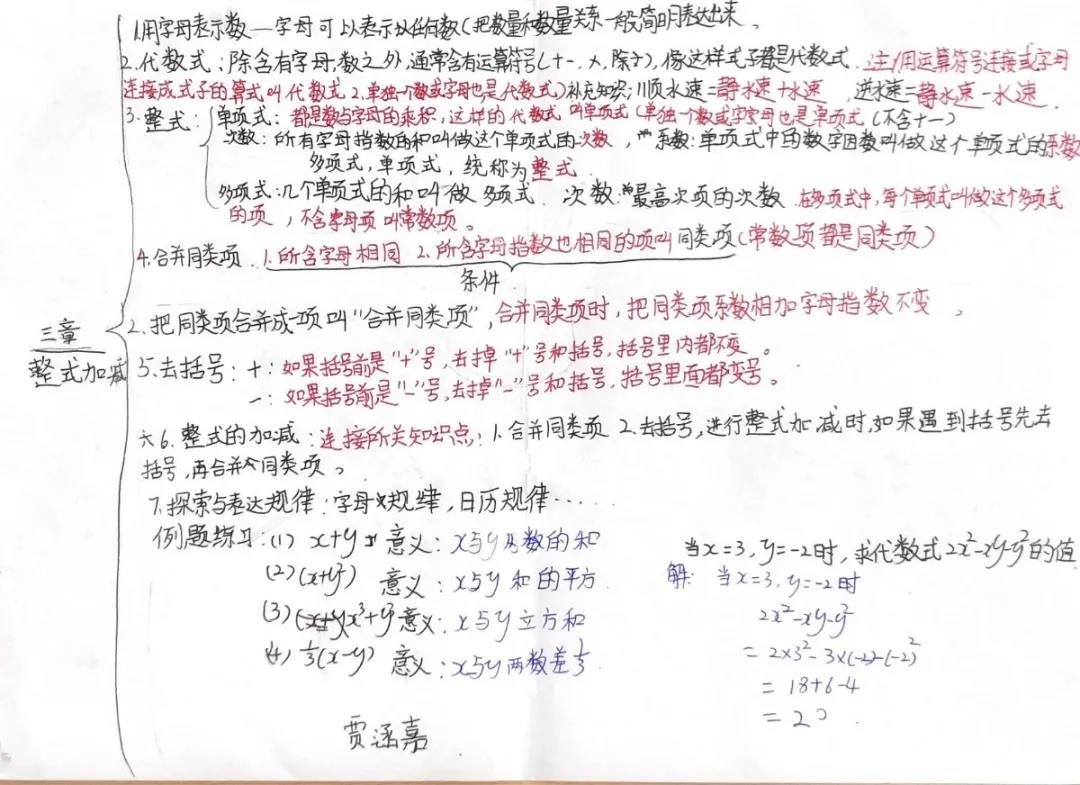 1.用字母表示数—字母可以表示以任何数(把数量和数量关系一般简明表达出来。
2.代数式:除含有字母,数之外,通常含有运算符号(+-,×,除÷),像这样式子都是代数式.注1用运算符号连接或字母
连接成式子的算式叫代数式 2.单独一个数或字母也是代数式)补充知识:川顺水速=静水速+水速,逆水速=静水速-水速.
3.整式:单项式:都是数与字母的乘积,这样的代数式叫单项式(单独一个数或字母也是单项式(不含+-)
次数:所有字母指数的和叫做这个单项式的次数,系数:单项式中的数字因数叫做这个单项式的系数
多项式,单项式,统称为整式.
多项式:几个单项式的和叫做多项式.次数:最高次项的次数.在多项式中,每个单项式叫做这个多项式
的项,不含字母项叫常数项。
4.合并同类项.1.所含字母相同 2.所含字母指数也相同的项叫同类项(常数项都是同类项)
条件
三章
整式加减
2.把同类项合并成一项叫"合并同类项",合并同类项时,把同类项系数相加字母指数不变,
5.去括号:+:如果括号前是"+"号,去掉"+"号和括号,括号里内都不变。
-:如果括号前是"-"号,去掉"-"号和括号,括号里面都变号。
六6.整式的加减:连接所关知识点:1.合并同类项 2.去括号,进行整式加减时,如果遇到括号先去
括号,再合并同类项。
7.探索与表达规律:字母规律,日历规律.....
例题练习:(1) x+y 意义:x与y两数的和
(2)(x+y²) 意义:x与y和的平方
(3) x³+y³意义:x与y立方和
(4) ⅓(x-y) 意义:x与y两数差⅓
当x=3,y=-2时,求代数式2x²-xy-y²的值
解:当x=3,y=-2时
2x²-xy-y²
=2×3²-3×(-2)-(-2)²
=18+6-4
=20
贾涵嘉